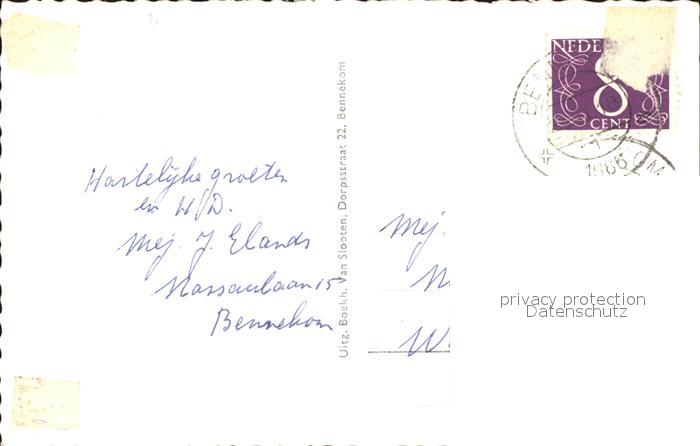 Hartelijke groeten
en
Mej. J. Elands
Nassaulaan 15
Bennekom
Uitg. Boekh. Van Slooten, Dorpsstraat 22, Bennekom
NEDE
8
CENT
BENN
1966
OM
Mej.
N
W
privacy protection
Datenschutz